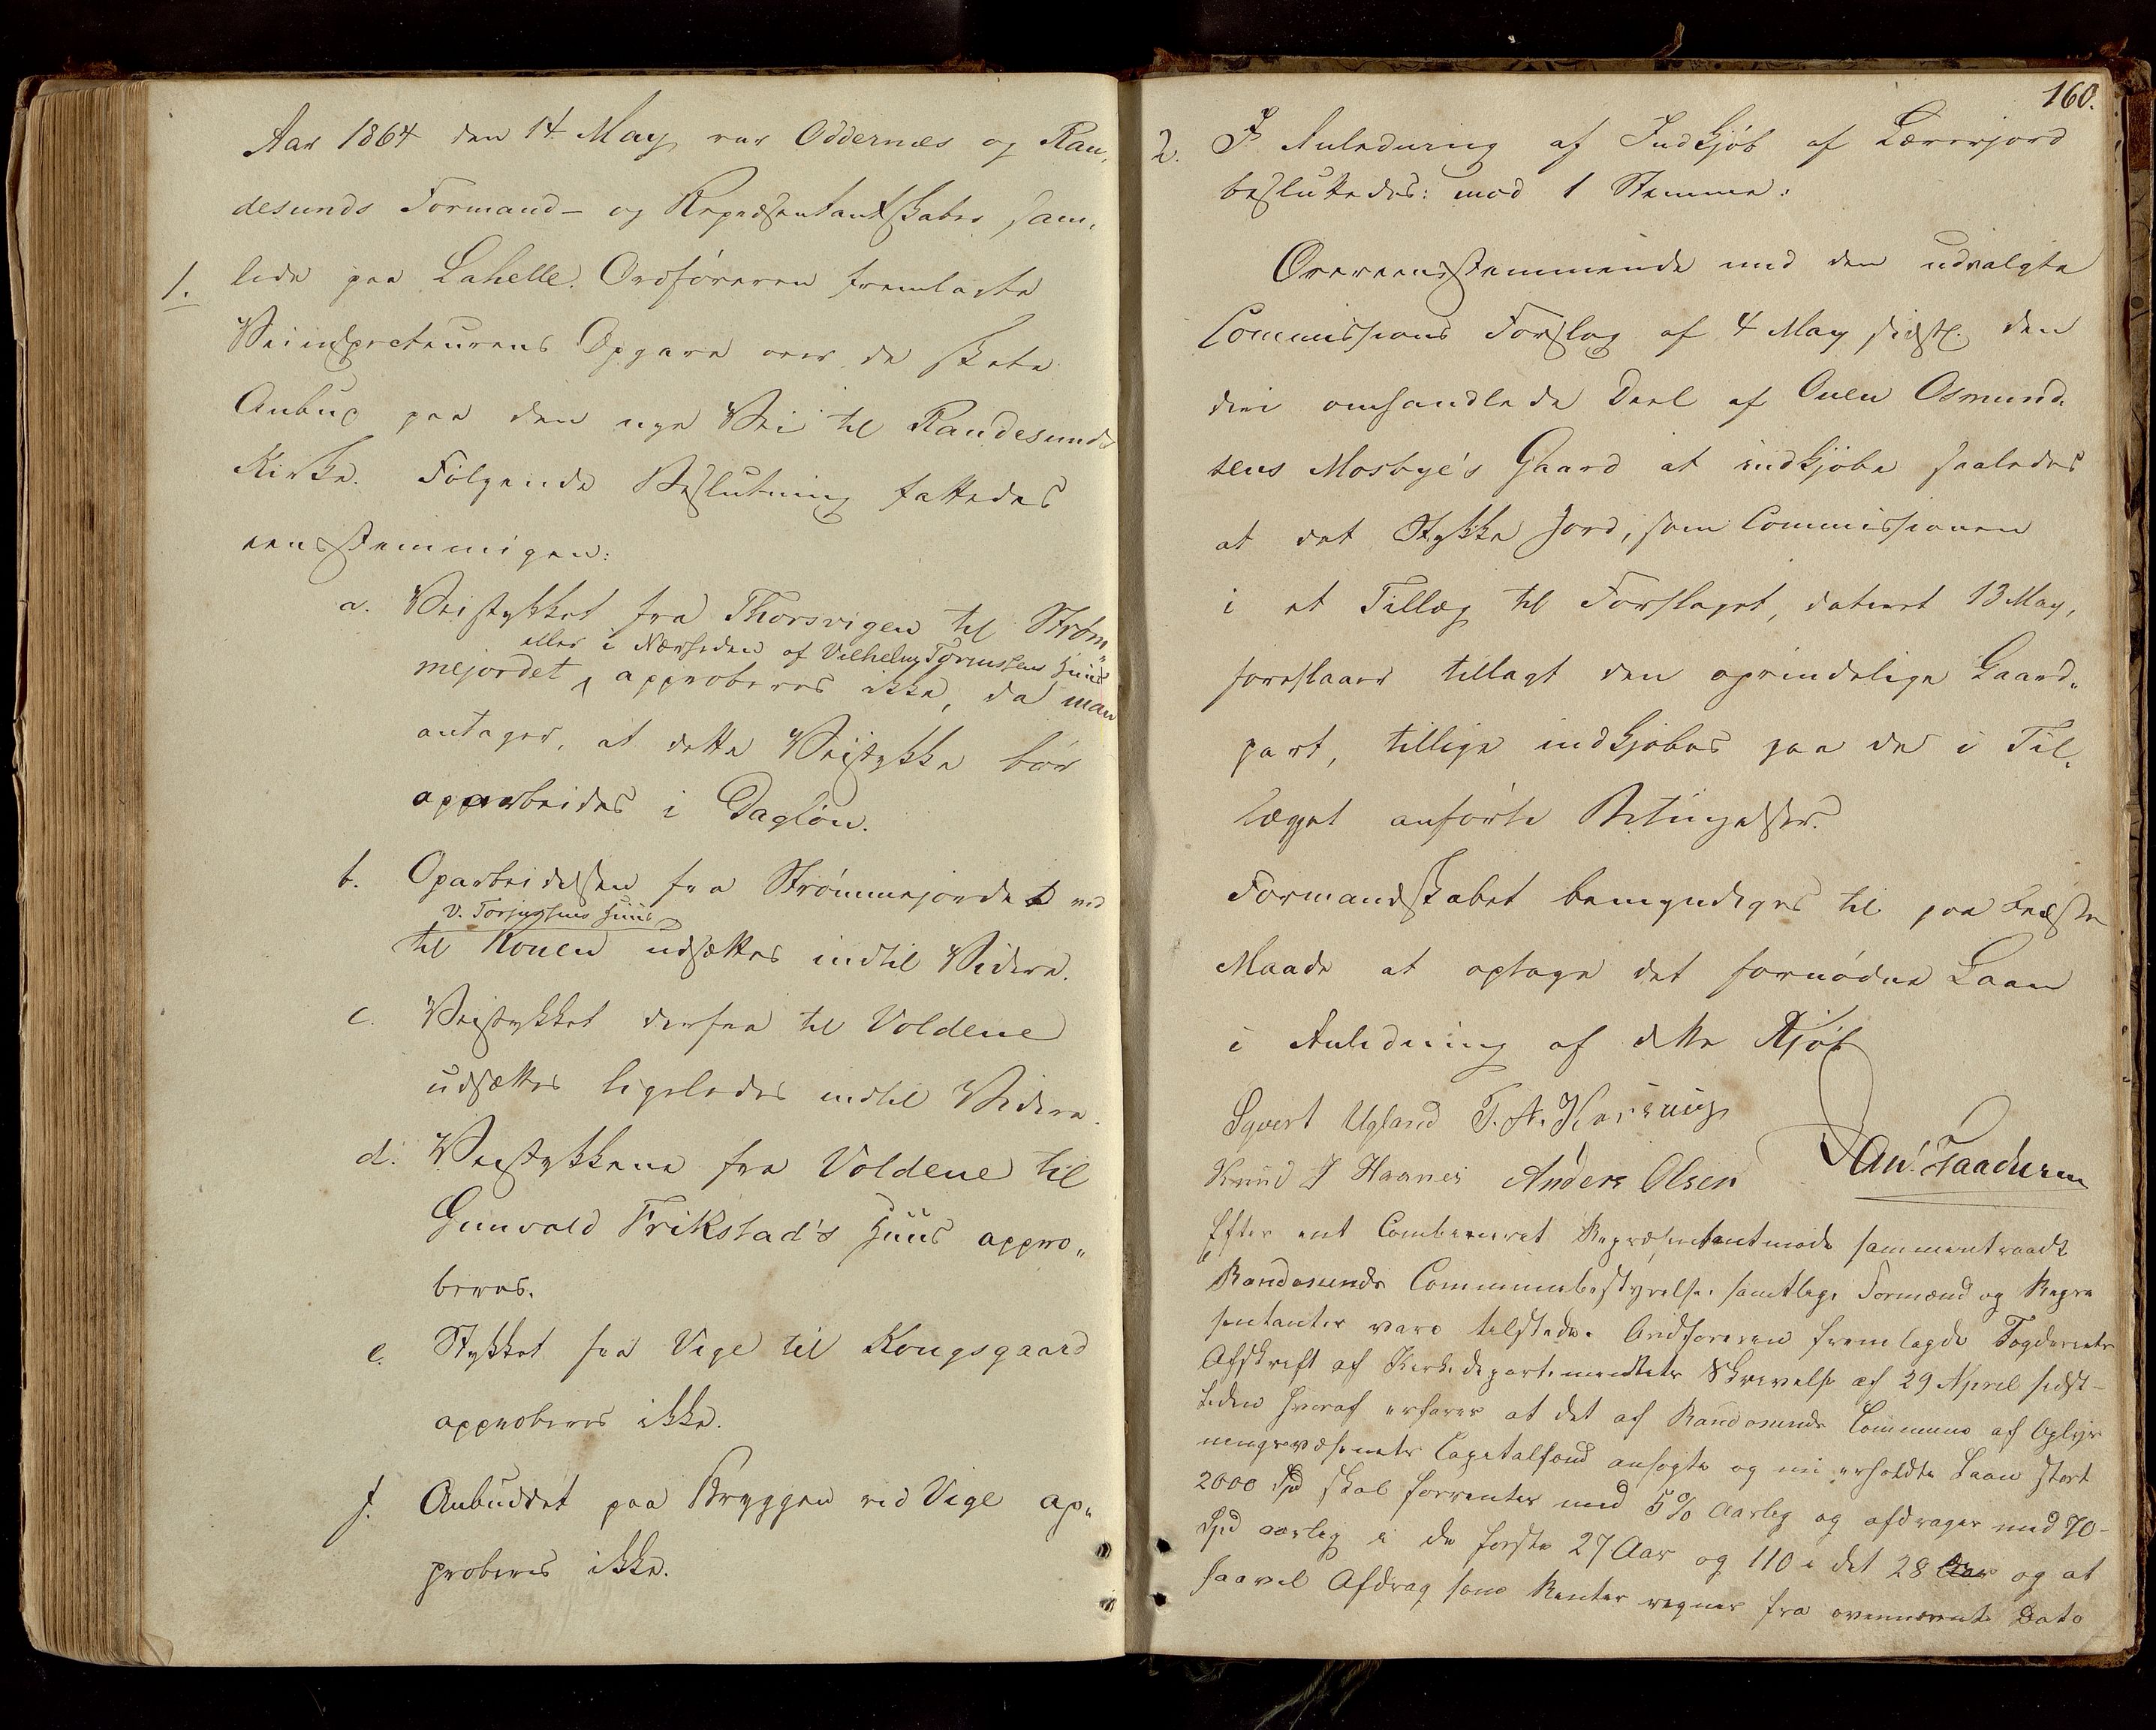 Aar 1864 den 14 May var Oddernæs og Ran„
desunds Formand- og Repræsentantskaber sam„
1. lede paa Lahelle. Ordføreren fremlagte
Veiinspecteurens Opgave over de skete
Anbud paa den nye Vei til Randesunds
Kirke. Følgende Beslutning fattedes
eensstemmigen:
a. Veistykket fra Thorsvigen til Strøm„
eller i Nærheden af Vilhelm Tørressens Huus
mejordet, approberes ikke, da man
antager, at dette Veistykke bør
opparbeides i Dagløn.
b. Oparbeidelsen fra Strømmejordet ved
V. Torjussens Huus
til Ronen udsættes indtil Videre.
c. Veistykket derfra til Voldene
udsættes ligeledes indtil Videre.
d. Veistykkene fra Voldene til
Gunvald Frikstad's Huus appro„
beres.
e. Stykket fra Vige til Kongsgaard
approberes ikke.
f. Anbuddet paa Bryggen ved Vige ap„
proberes ikke.
160.
2. I Anledning af Indkjøb af Lærerjord
besluttedes: mod 1 Stemme:
Overeensstemmende med den udvalgte
Commissions Forslag af 4 May sidstl. den
deri omhandlede Deel af Ouen Osmund„
sens Mosbye's Gaard at indkjøbe saaledes
at det Stykke Jord, som Commissionen
i et Tillæg til Forslaget, dateret 13 May,
foreslaaer tillagt den oprindelige Gaard„
part, tillige indkjøbes paa de i Til„
lægget anførte Betingelser.
Formandskabet bemyndiges til paa bedste
Maade at optage det fornødne Laan
i Anledning af dette Kjøb
Sywert Ugland T. A.
Knud J Haanes Anders Olsen And.
Efter eet Combineret Repræsentantmøde sammentraadt
Randesunds Communebestyrelse. samtlige Formænd og Repræ
sentanter vare tilstede. Ordføreren fremlagde Fogderiets
Afskrift af Kirkedepartementets Skrivelse af 29 April sidst-
leden hvoraf erfares at det af Randesunds Commune af Oplys
ningsvæsenets Capitalfond ansøgte og nu erholdte Laan stort
2000 Spd skal forrentes med 5% Aarlig og afdrages med 70-
Spd aarlig i de første 27 Aar og 110 i det 28 Aar og at
saavel Afdrag som Renter regnes fra ovennævnte Dato